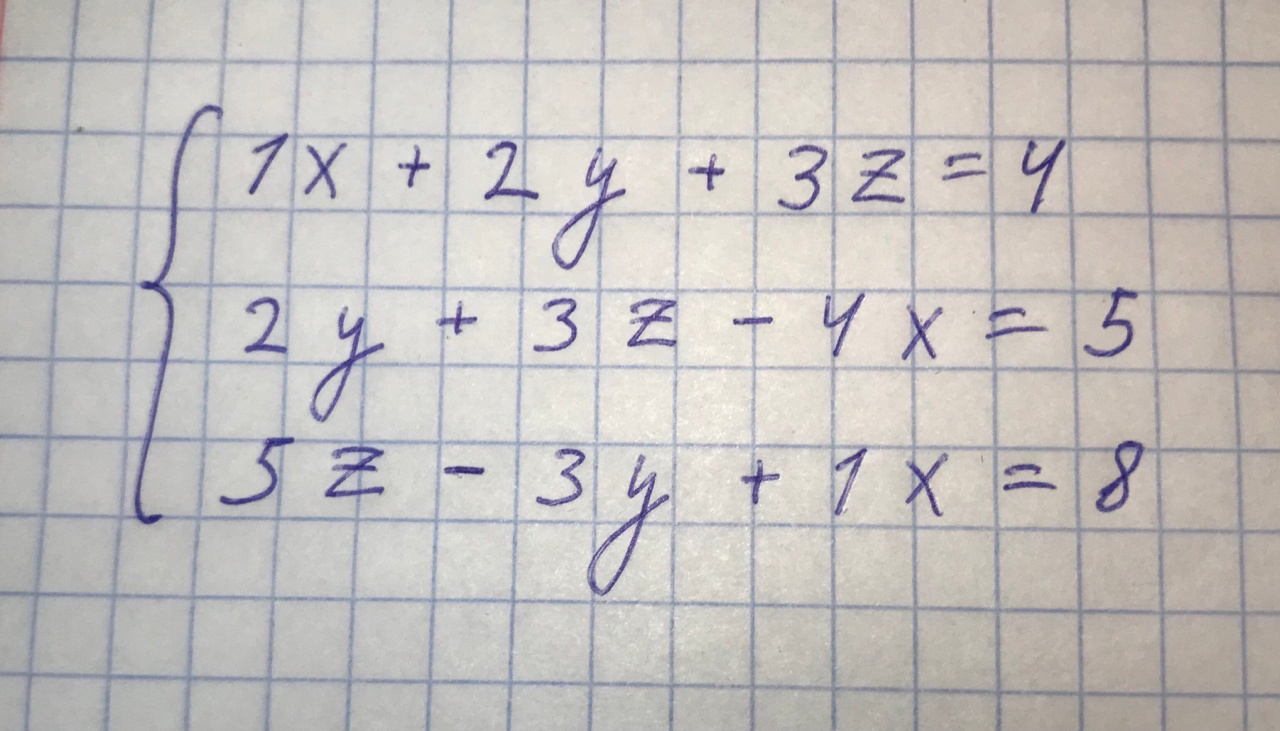 1x + 2y + 3z = 4
2y + 3z - 4x = 5
5z - 3y + 1x = 8